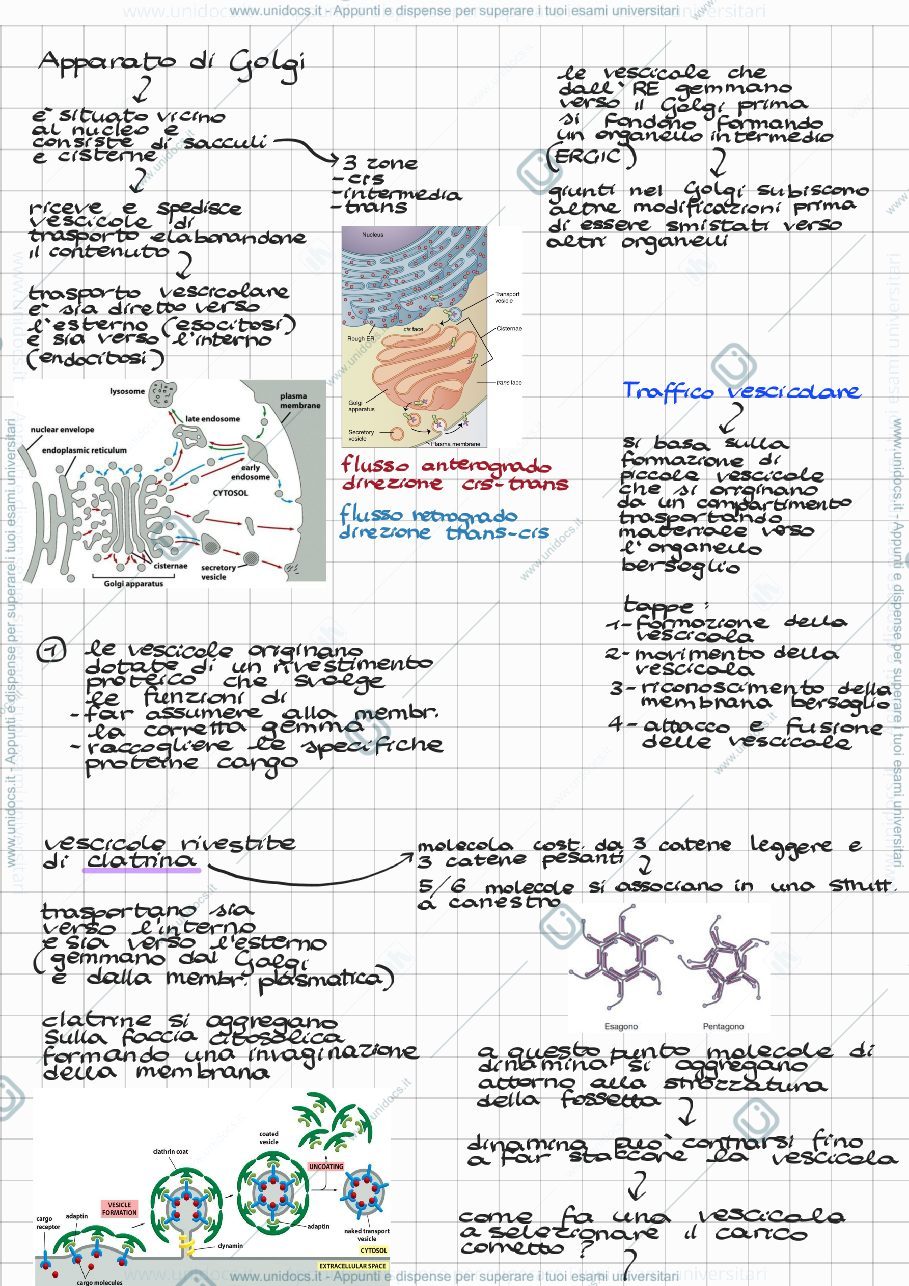 www.unidocs.it - Appunti e dispense per superare i tuoi esami universitari
Apparato di Golgi
è situato vicino
al nucleo e
consiste di sacculi
e cisterne
3 zone
- cis
- intermedia
- trans
riceve e spedisce
vescicole di
trasporto elaborandone
il contenuto
trasporto vescicolare
è sia diretto verso
l'esterno (esocitosi)
e sia verso l'interno
(endocitosi)
le vescicole che
dall'RE gemmano
verso il Golgi prima
si fondono formando
un organello intermedio
(ERGIC)
giunti nel Golgi subiscono
altre modificazioni prima
di essere smistati verso
altri organelli
Nucleus
Transport
vesicle
cis face
Cisternae
Rough ER
trans face
Golgi
apparatus
Secretory
vesicle
Plasma membrane
lysosome
plasma
membrane
late endosome
nuclear envelope
endoplasmic reticulum
early
endosome
CYTOSOL
cisternae
secretory
vesicle
Golgi apparatus
flusso anterogrado
direzione cis-trans
flusso retrogrado
direzione trans-cis
Traffico vescicolare
si basa sulla
formazione di
piccole vescicole
che si originano
da un compartimento
trasportando
materiale verso
l'organello
bersaglio
tappe:
1- formazione della
vescicola
2- movimento della
vescicola
3- riconoscimento della
membrana bersaglio
4- attacco e fusione
delle vescicole
1 le vescicole originano
dotate di un rivestimento
proteico che svolge
le funzioni di
- far assumere alla membr.
la corretta gemma
- raccogliere le specifiche
proteine cargo
vescicole rivestite
di clatrina
molecola cost. da 3 catene leggere e
3 catene pesanti
5/6 molecole si associano in una strutt.
a canestro
Esagono
Pentagono
trasportano sia
verso l'interno
e sia verso l'esterno
(gemmano dal Golgi
e dalla membr. plasmatica)
clatrine si aggregano
sulla faccia citosolica
formando una invaginazione
della membrana
a questo punto molecole di
dinamina si aggregano
attorno alla strozzatura
della fossetta
dinamina può contrarsi fino
a far staccare la vescicola
come fa una vescicola
a selezionare il carico
corretto?
coated
vesicle
clathrin coat
UNCOATING
VESICLE
FORMATION
cargo
receptor
adaptin
adaptin
dynamin
naked transport
vesicle
CYTOSOL
EXTRACELLULAR SPACE
cargo molecules
www.unidocs.it - Appunti e dispense per superare i tuoi esami universitari
www.unidocs.it - Appunti e dispense per superare i tuoi esami universitari
www.unidocs.it - Appunti e dispense per superare i tuoi esami universitari